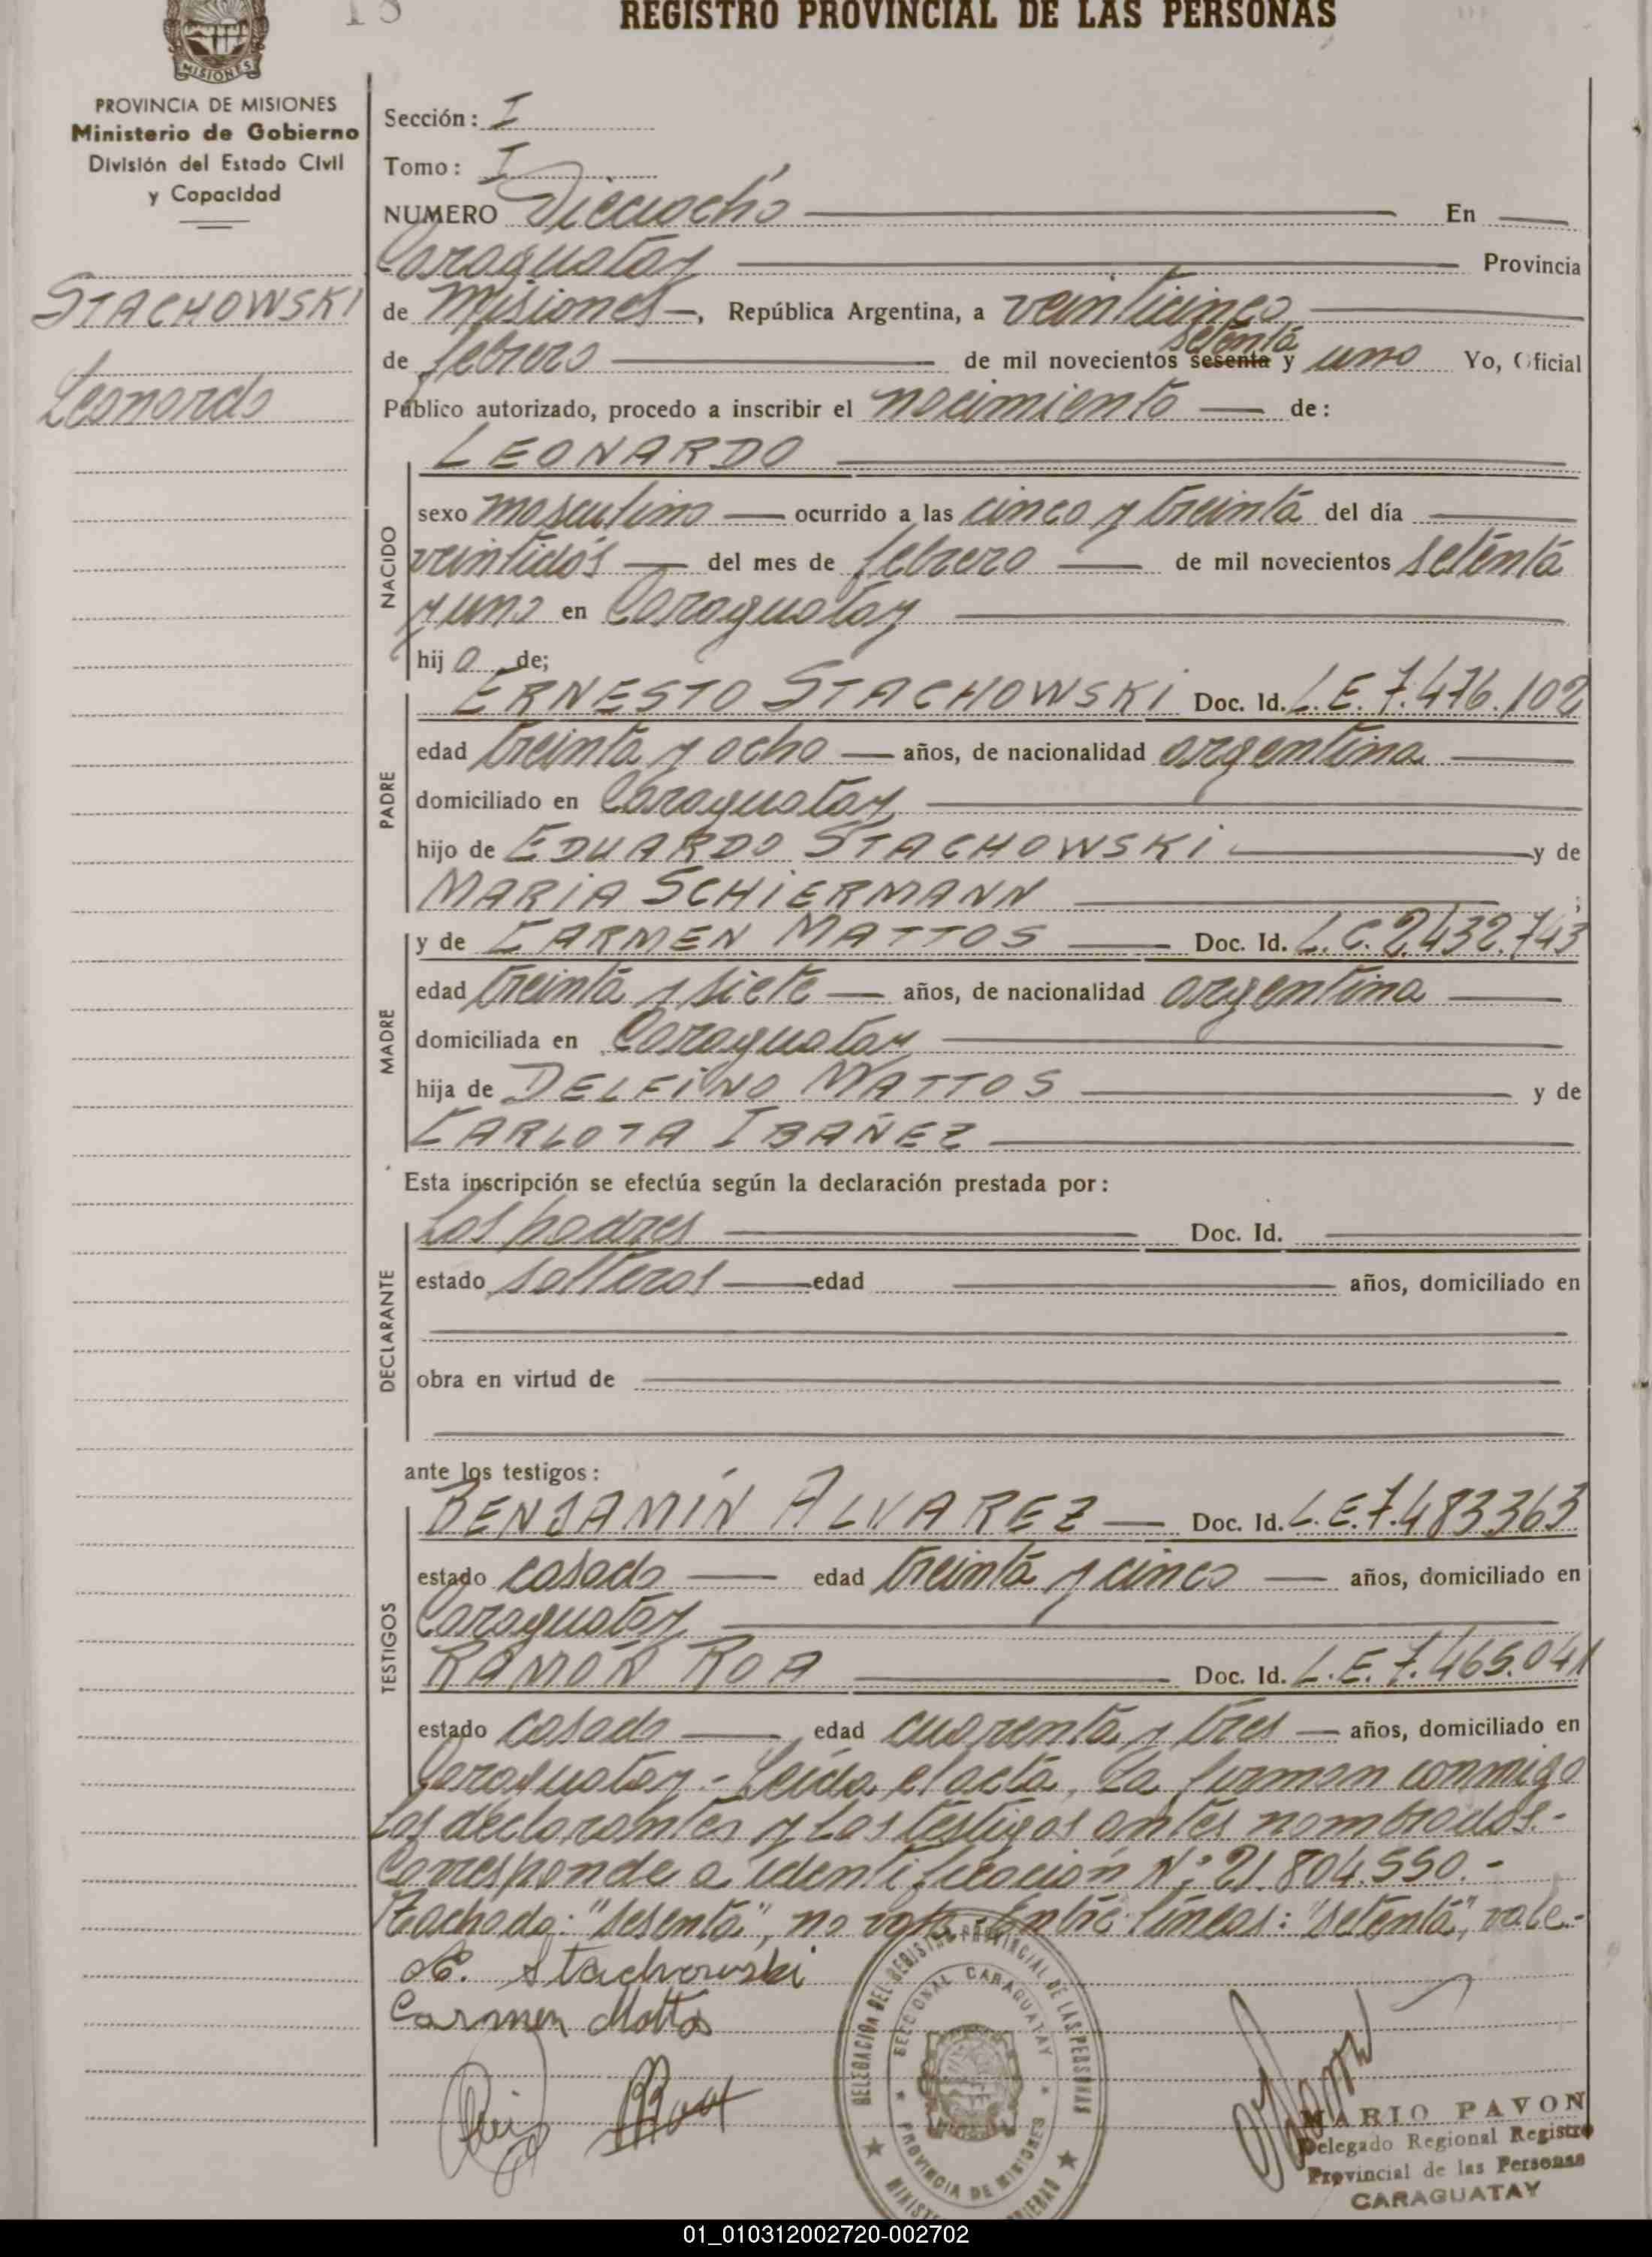 18
REGISTRO PROVINCIAL DE LAS PERSONAS
MISIONES
PROVINCIA DE MISIONES
Ministerio de Gobierno
División del Estado Civil
y Capacidad
STACHOWSKI
Leonardo
Sección: I
Tomo: I
NUMERO Dieciocho En
Caraguatay Provincia
de Misiones, República Argentina, a veinticinco
setenta
de febrero de mil novecientos sesenta y uno Yo, Oficial
Público autorizado, procedo a inscribir el nacimiento de:
LEONARDO
NACIDO
sexo masculino ocurrido a las cinco y treinta del día
veintidós del mes de febrero de mil novecientos setenta
y uno en Caraguatay
hijo de;
PADRE
ERNESTO STACHOWSKI Doc. Id. L.E. 7.476.102
edad treinta y ocho años, de nacionalidad argentina
domiciliado en Caraguatay
hijo de EDUARDO STACHOWSKI y de
MARIA SCHIERMANN ;
MADRE
y de CARMEN MATTOS Doc. Id. L.C. 2.432.743
edad treinta y siete años, de nacionalidad argentina
domiciliada en Caraguatay
hija de DELFINO MATTOS y de
CARLOTA IBAÑEZ
Esta inscripción se efectúa según la declaración prestada por:
DECLARANTE
Los padres Doc. Id.
estado solteros edad años, domiciliado en
obra en virtud de
ante los testigos:
TESTIGOS
BENJAMÍN ALVAREZ Doc. Id. L.E. 7.483363
estado casado edad treinta y cinco años, domiciliado en
Caraguatay
RAMÓN ROA Doc. Id. L.E. 7.465.041
estado casado edad cuarenta y tres años, domiciliado en
Caraguatay.- Leída el acta, la firman conmigo
los declarantes y los testigos antes nombrados.-
Corresponde a identificación Nº 21.804.550.-
Tachado: "sesenta", no vale. Entre líneas: "setenta", vale.-
E. Stachowski
Carmen Mattos
DELEGACIÓN DEL REGISTRO PROVINCIAL DE LAS PERSONAS
SECCIONAL CARAGUATAY
PROVINCIA DE MISIONES
MARIO PAVON
Delegado Regional Registro
Provincial de las Personas
CARAGUATAY
01_010312002720-002702